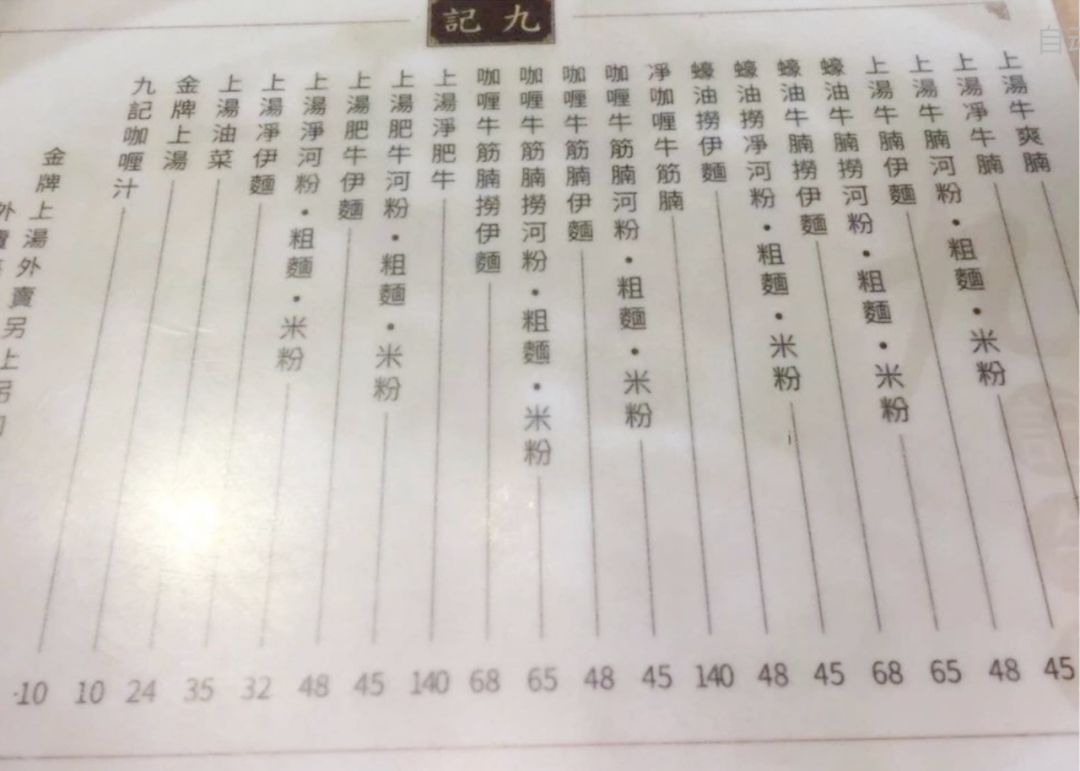 九記
上湯牛爽腩
上湯凈牛腩
上湯牛腩河粉・粗麵・米粉 45
上湯牛腩伊麵 48
蠔油牛腩撈河粉・粗麵・米粉 65
蠔油牛腩撈伊麵 68
蠔油撈凈河粉・粗麵・米粉 45
蠔油撈伊麵 48
凈咖喱牛筋腩 140
咖喱牛筋腩河粉・粗麵・米粉 45
咖喱牛筋腩伊麵 48
咖喱牛筋腩撈河粉・粗麵・米粉 65
咖喱牛筋腩撈伊麵 68
上湯淨肥牛 140
上湯肥牛河粉・粗麵・米粉 45
上湯肥牛伊麵 48
上湯淨河粉・粗麵・米粉 32
上湯凈伊麵 35
上湯油菜 24
金牌上湯 10
九記咖喱汁 10
金牌上湯外賣另